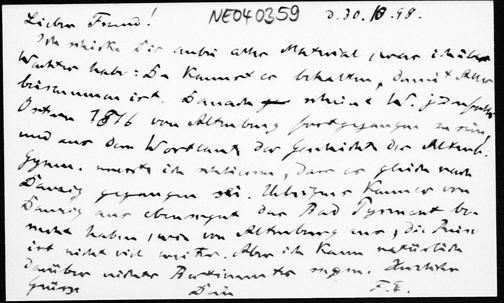 Lieber Freund! NE040359 d. 30. 8. 98.
Ich schicke Dir anbei alles Material, was ich über
Wachter habe: Du kannst es behalten, damit Alles
beisammen ist. Danach scheint W. jedenfalls
Ostern 1816 von Altenburg fortgegangen zu sein,
und aus dem Wortlaut der Geschichte des Altenb.
Gymn. möchte ich schliessen, dass er gleich nach
Danzig gegangen sei. Übrigens kann er von
Danzig aus ebensogut das Bad Pyrmont be-
sucht haben, wie von Altenburg aus, die Reise
ist nicht viel weiter. Aber ich kann natürlich
darüber nichts Bestimmtes sagen. Herzliche
Grüsse Dein F. E.